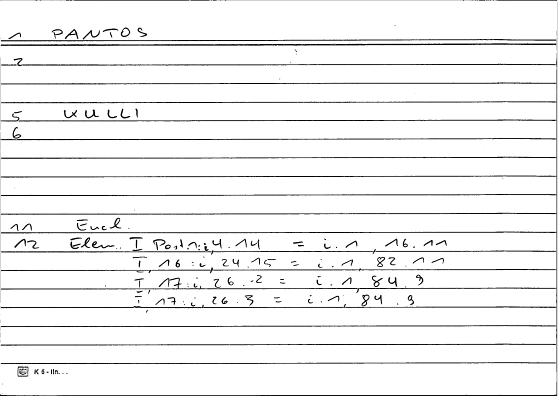 1 PANTOS
2
5 KULLI
6
11 Eucl.
12 Elem. I Post.1:i,4.14 = i.1,16.11
I,16:i,24.15 = i.1,82.11
I,17:i,26.2 = i.1,84.9
I,17:i,26.3 = i.1,84.9
K 6 - IIn. . .